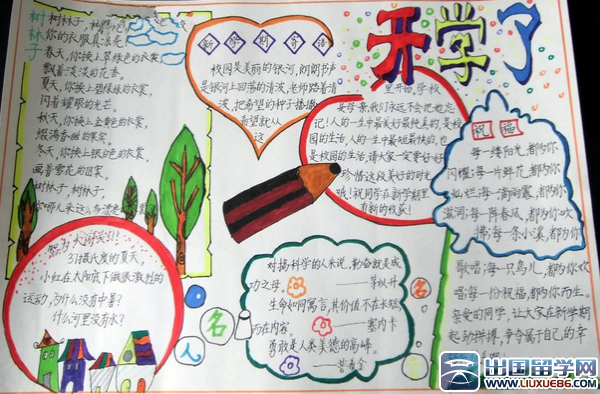 开学了
树林子
树林子,树林子,
你的衣服真漂亮
春天,你换上翠绿色的衣裳
飘着淡淡的花香。
夏天,你换上碧绿绿的衣裳,
闪着耀眼的光芒。
秋天,你换上金黄色的衣裳,
缀满香甜的果实。
冬天,你换上银白色的衣裳
画着雪花的图案。
树林子,树林子,
新学期寄语
校园是美丽的银河,朗朗书声
是银河上回荡的清波,老师踏着清
波,把希望的种子播撒
希望就从
这
里开始,学校
是母亲,我们永远不会把她忘
记!人的一生中最美好最纯真的是校
园的生活,人的一生中最短暂的,也
是校园的生活,请大家一定要好好
珍惜这段美好的时光
哦!祝同学在新学期里
有新的收获!
祝福
每一缕阳光,都为你
闪耀;每一片鲜花,都为你
灿烂;每一滴雨露,都为你
滋润;每一阵春风,都为你吹
拂;每一条小溪,都为你
歌唱;每一只鸟儿,都为你欢
唱;每一份祝福,都为你而生。
亲爱的同学,让大家在新学期
起努力拼搏,争夺属于自己的幸
31摄氏度的夏天,
小红在太阳底下做很激烈的
运动,为什么没有中暑?
什么河里没有水?
名人名
对搞科学的人来说,勤奋就是成
功之母。——茅以升
生命如同寓言,其价值不在长短,
而在内容。——塞内卡
勇敢是人类美德的高峰。
出国留学网
www.liuxue86.com